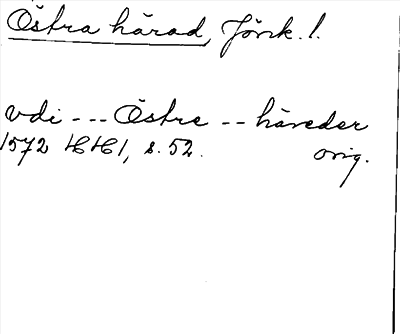 Östra härad, Jönk. l.
vdi --- Östre -- häreder
1572 HH1, s. 52. orig.